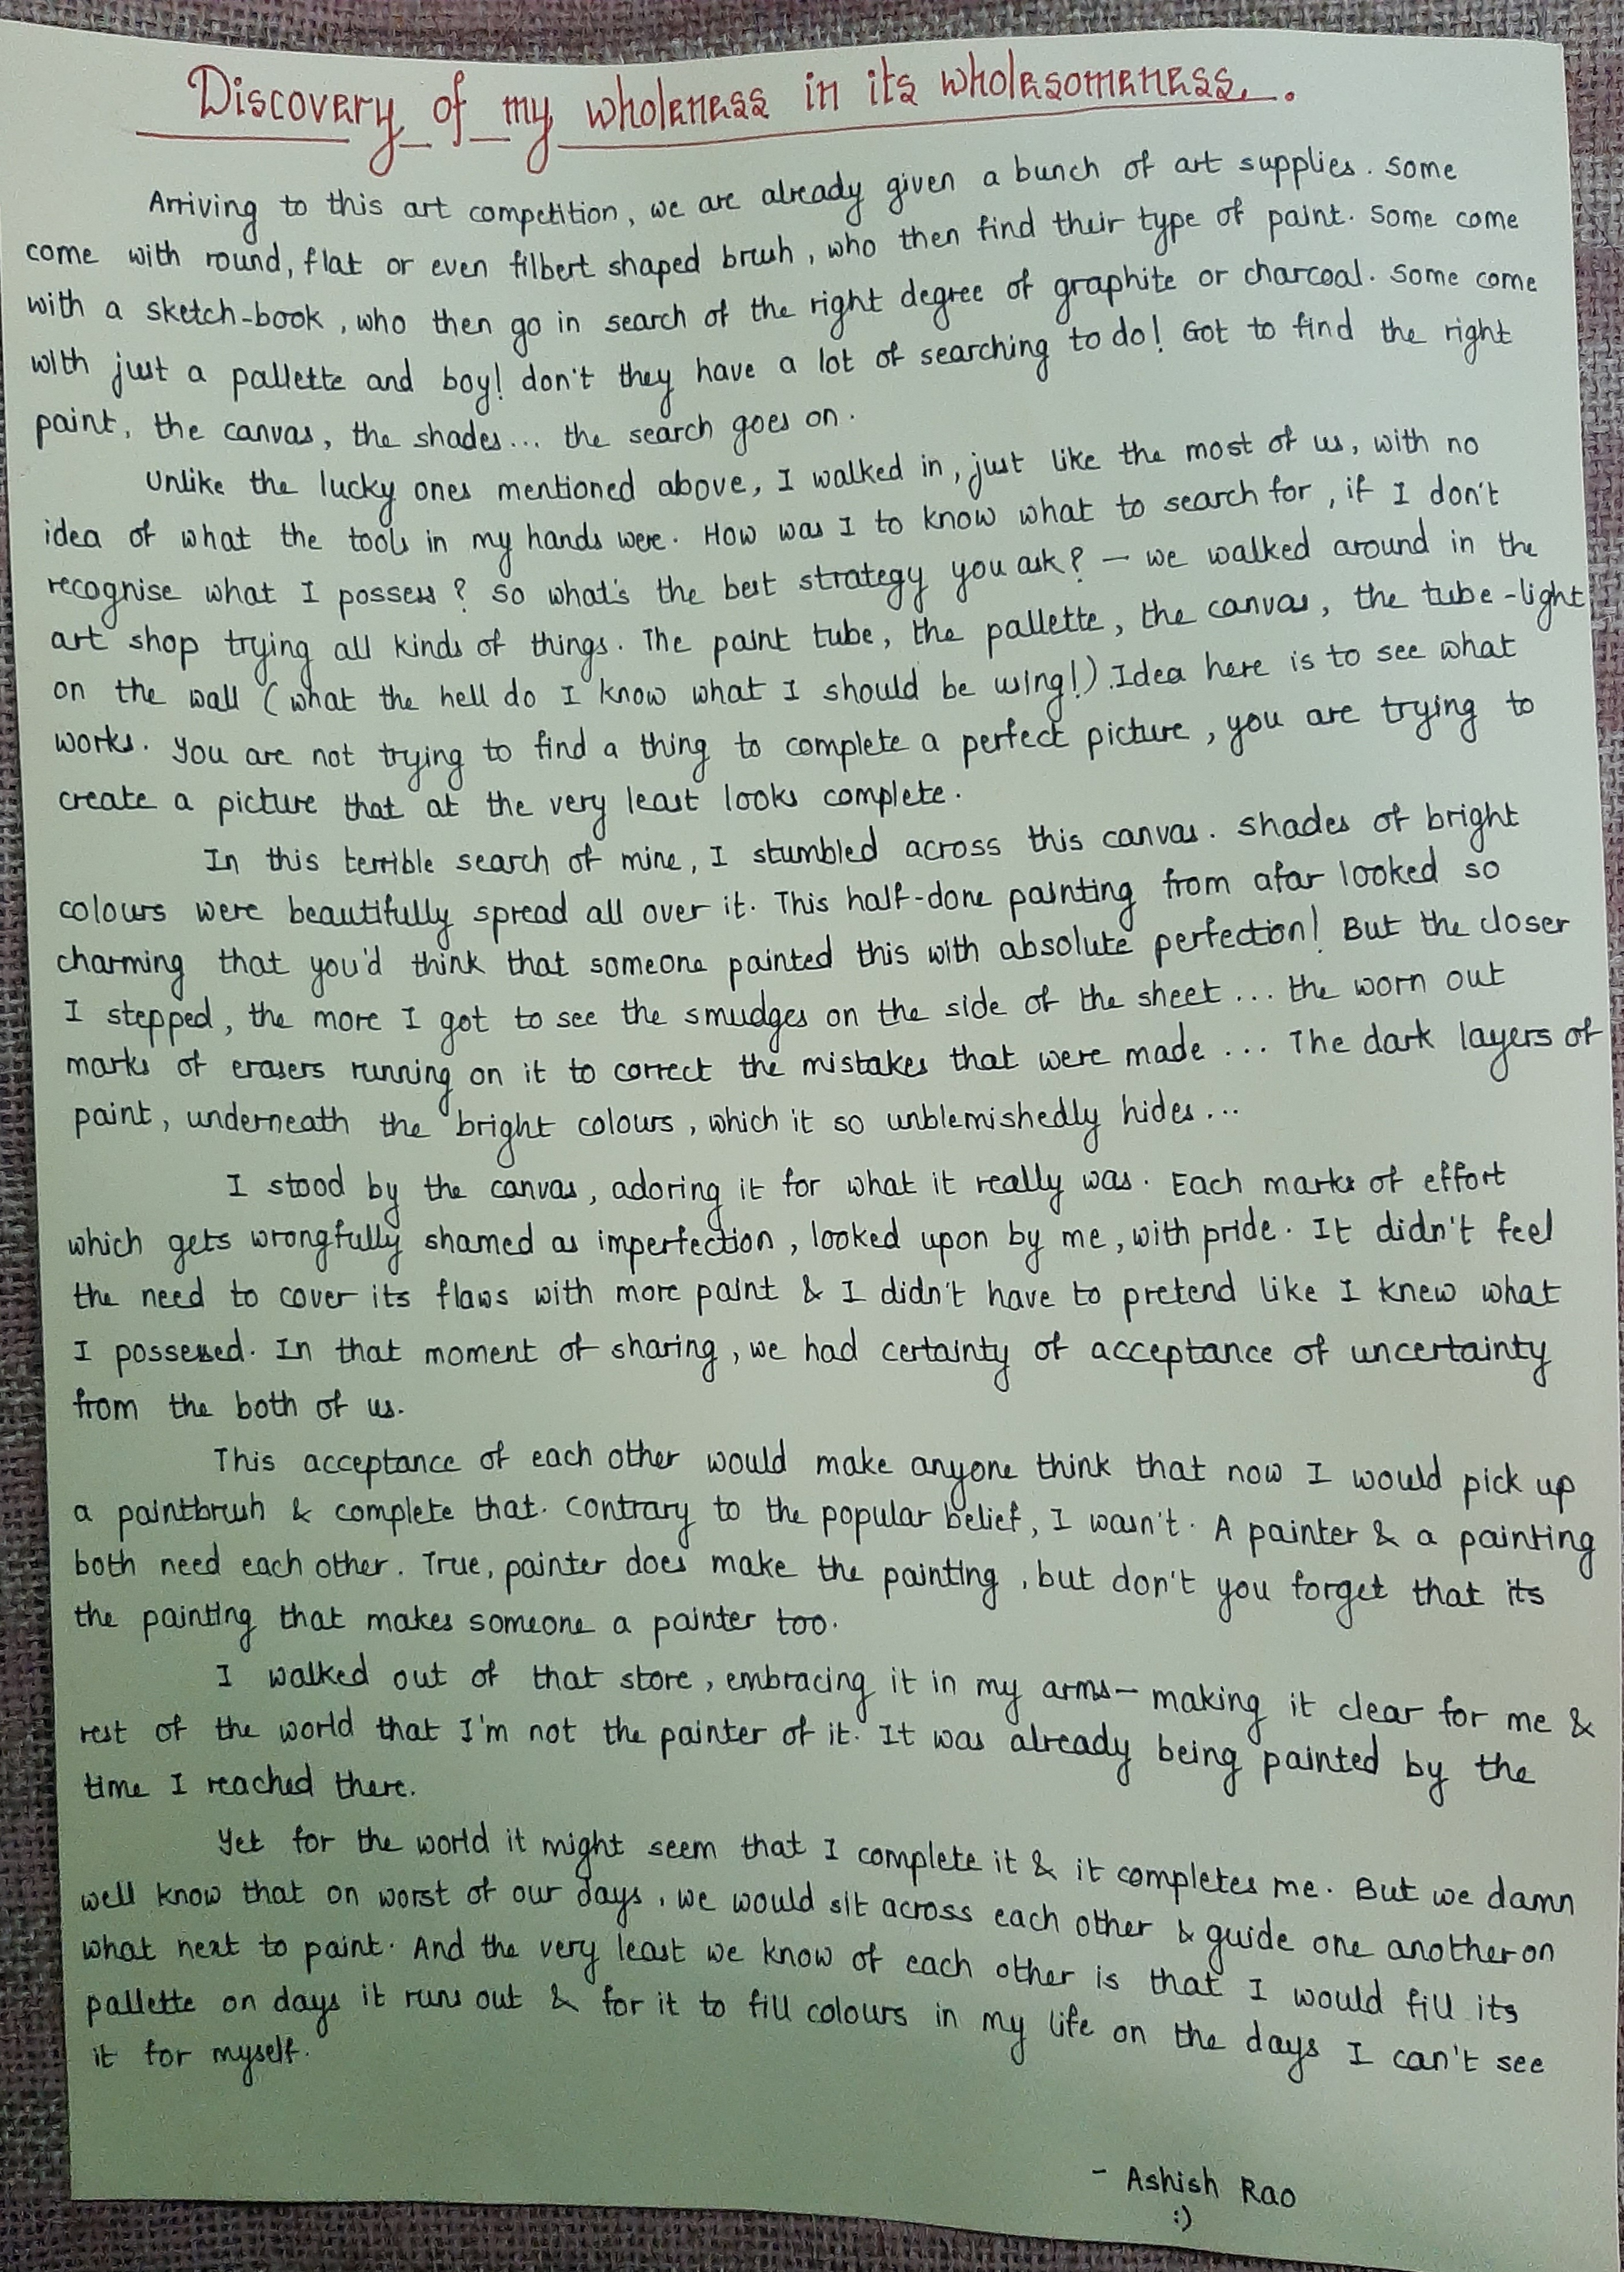 Discovery of my wholeness in its wholesomeness..
Arriving to this art competition, we are already given a bunch of art supplies. Some
come with round, flat or even filbert shaped brush, who then find their type of paint. Some come
with a sketch-book, who then go in search of the right degree of graphite or charcoal. Some come
with just a pallette and boy! don't they have a lot of searching to do! Got to find the right
paint, the canvas, the shades... the search goes on.
Unlike the lucky ones mentioned above, I walked in, just like the most of us, with no
idea of what the tools in my hands were. How was I to know what to search for, if I don't
recognise what I possess? So what's the best strategy you ask? - we walked around in the
art shop trying all kinds of things. The paint tube, the pallette, the canvas, the tube-light
on the wall (what the hell do I know what I should be using!). Idea here is to see what
works. You are not trying to find a thing to complete a perfect picture, you are trying to
create a picture that at the very least looks complete.
In this terrible search of mine, I stumbled across this canvas. Shades of bright
colours were beautifully spread all over it. This half-done painting from afar looked so
charming that you'd think that someone painted this with absolute perfection! But the closer
I stepped, the more I got to see the smudges on the side of the sheet... the worn out
marks of erasers running on it to correct the mistakes that were made ... The dark layers of
paint, underneath the bright colours, which it so unblemishedly hides...
I stood by the canvas, adoring it for what it really was. Each marks of effort
which gets wrongfully shamed as imperfection, looked upon by me, with pride. It didn't feel
the need to cover its flaws with more paint & I didn't have to pretend like I knew what
I possessed. In that moment of sharing, we had certainty of acceptance of uncertainty
from the both of us.
This acceptance of each other would make anyone think that now I would pick up
a paintbrush & complete that. Contrary to the popular belief, I wasn't. A painter & a painting
both need each other. True, painter does make the painting, but don't you forget that its
the painting that makes someone a painter too.
I walked out of that store, embracing it in my arms- making it clear for me &
rest of the world that I'm not the painter of it. It was already being painted by the
time I reached there.
Yet for the world it might seem that I complete it & it completes me. But we damn
well know that on worst of our days, we would sit across each other & guide one another on
what next to paint. And the very least we know of each other is that I would fill its
pallette on days it runs out & for it to fill colours in my life on the days I can't see
it for myself.
- Ashish Rao
:)